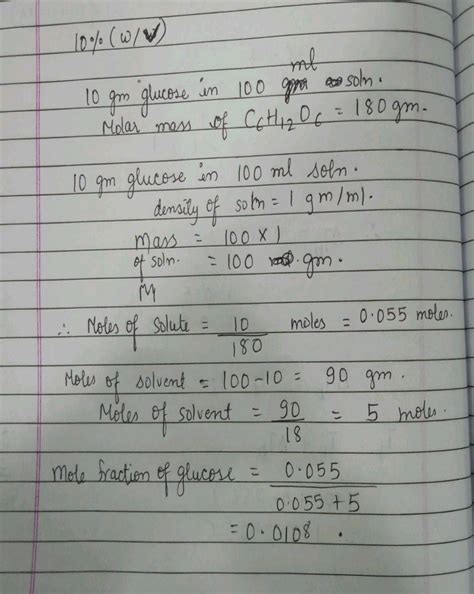 10% (W/V)
10 gm glucose in 100 ml soln.
Molar mass of C6H12O6 = 180 gm.
10 gm glucose in 100 ml soln.
density of soln = 1 gm/ml.
mass = 100 × 1
of soln. = 100 gm.
M
∴ Moles of Solute = 10/180 moles = 0.055 moles.
Moles of solvent = 100-10 = 90 gm.
Moles of solvent = 90/18 = 5 moles.
Mole fraction of glucose = 0.055/0.055+5
= 0.0108.